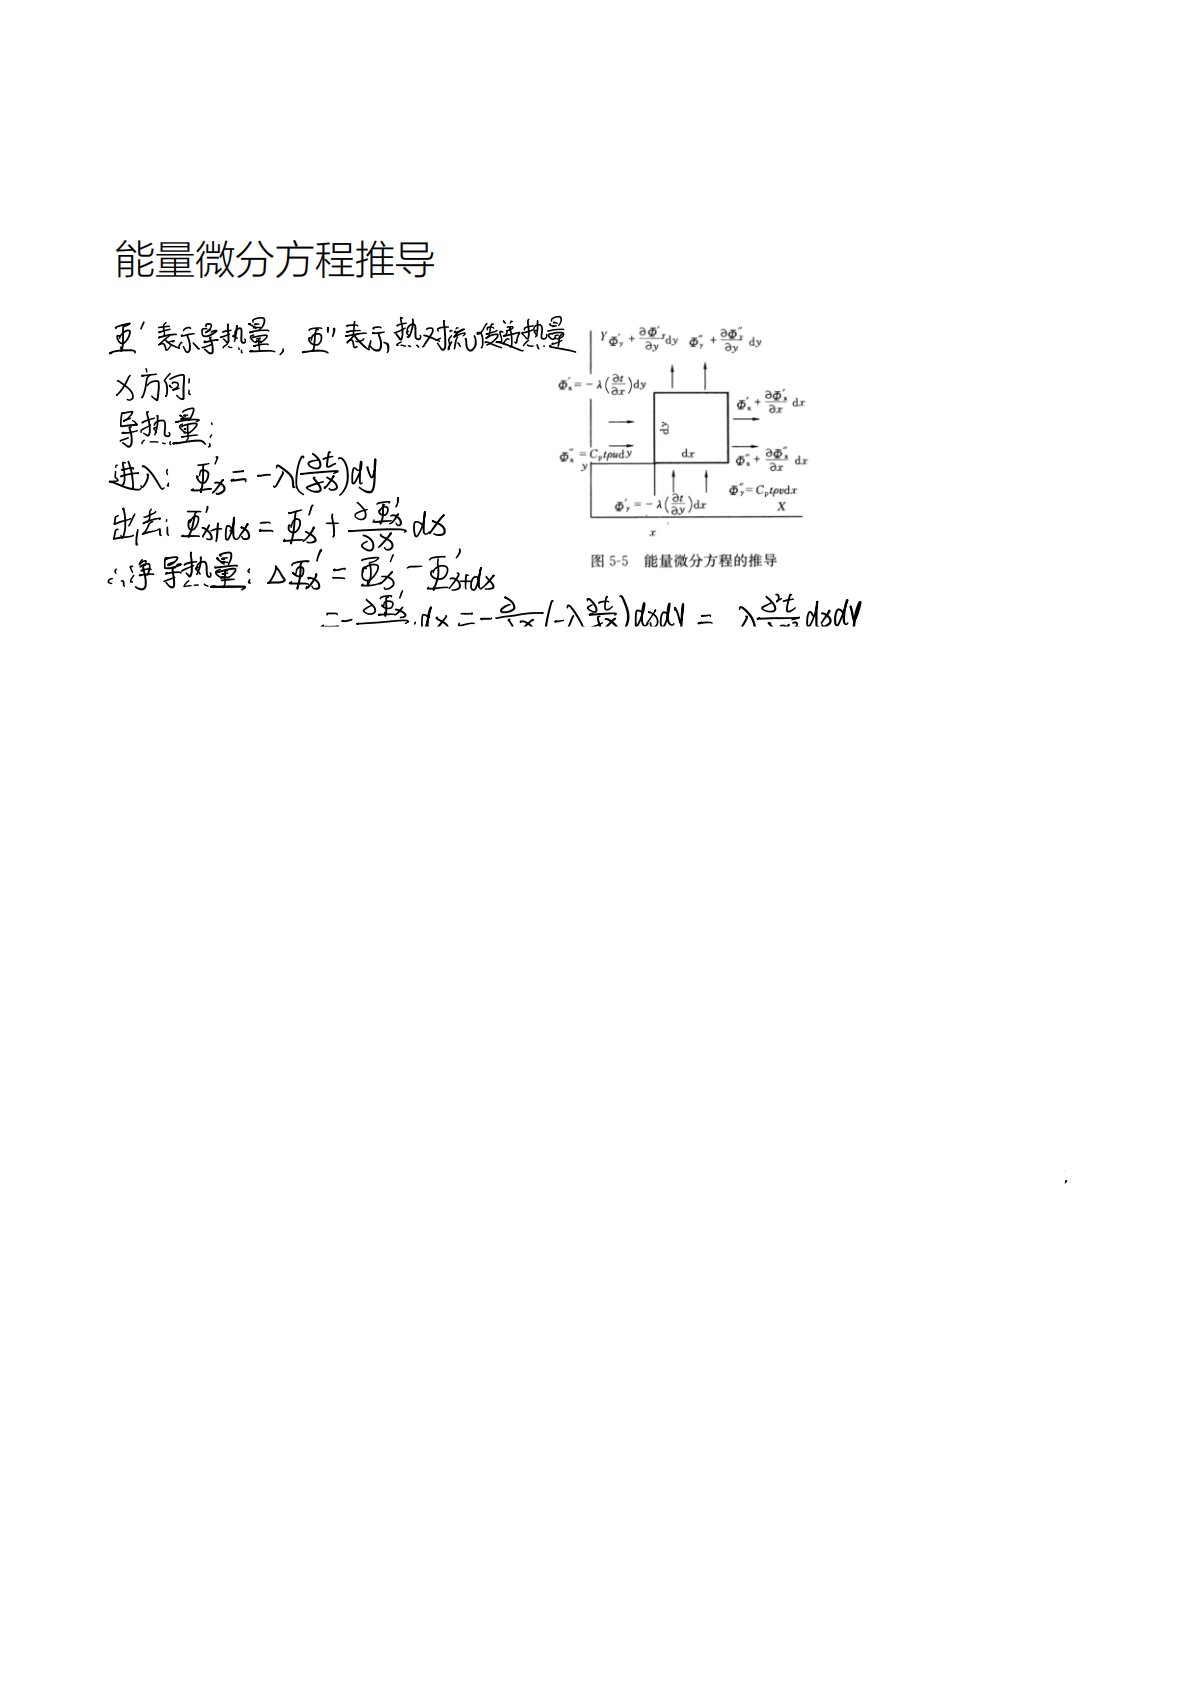 能量微分方程推导
Φ′表示导热量，Φ″表示热对流传递热量
x方向:
导热量:
进入: Φ′x = -λ(∂t/∂x)dy
出去: Φ′x+dx = Φ′x + ∂Φ′x/∂x dx
∴净导热量: ΔΦ′x = Φ′x - Φ′x+dx
= -∂Φ′x/∂x·dx = -∂/∂x(-λ∂t/∂x)dxdy = λ∂²t/∂x² dxdy
Y Φ′y + ∂Φ′y/∂y dy Φ″y + ∂Φ″y/∂y dy
Φ′x = -λ(∂t/∂x)dy
Φ′x + ∂Φ′x/∂x dx
dy
dx
Φ″x = Cptρudy
y
Φ″x + ∂Φ″x/∂x dx
Φ′y = -λ(∂t/∂y)dx
Φ″y = Cptρvdx
X
x
图 5-5 能量微分方程的推导